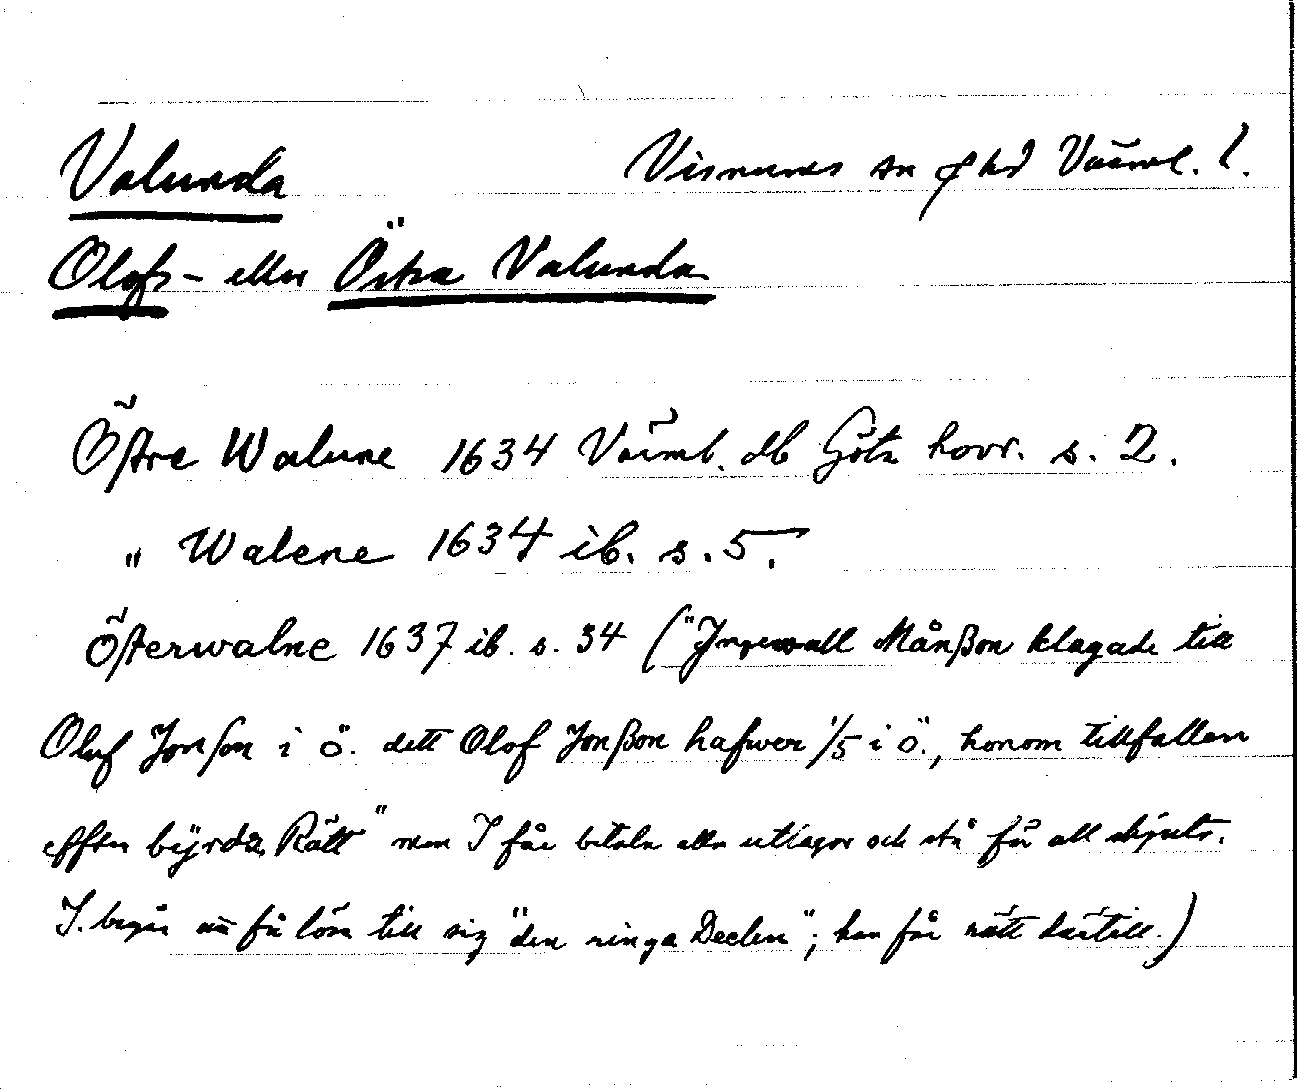 Valunda Visnums sn o hd Värml. l.
Olofs- eller Östra Valunda
Östre Walune 1634 Värml. db Göta hovr. s. 2.
" Walene 1634 ib. s. 5.
Österwalne 1637 ib. s. 34 ("Ingewall Månßon klagade till
Oluf Jonson i ö. dett Olof Jonßon hafwer 1/5 i ö., honom tillfallen
efften byrda Rätt" men I får betala alla utlagor och stå för all skjuts.
I. begär nu få lösa till sig "den ringa Deelen"; han får rätt härtill.)